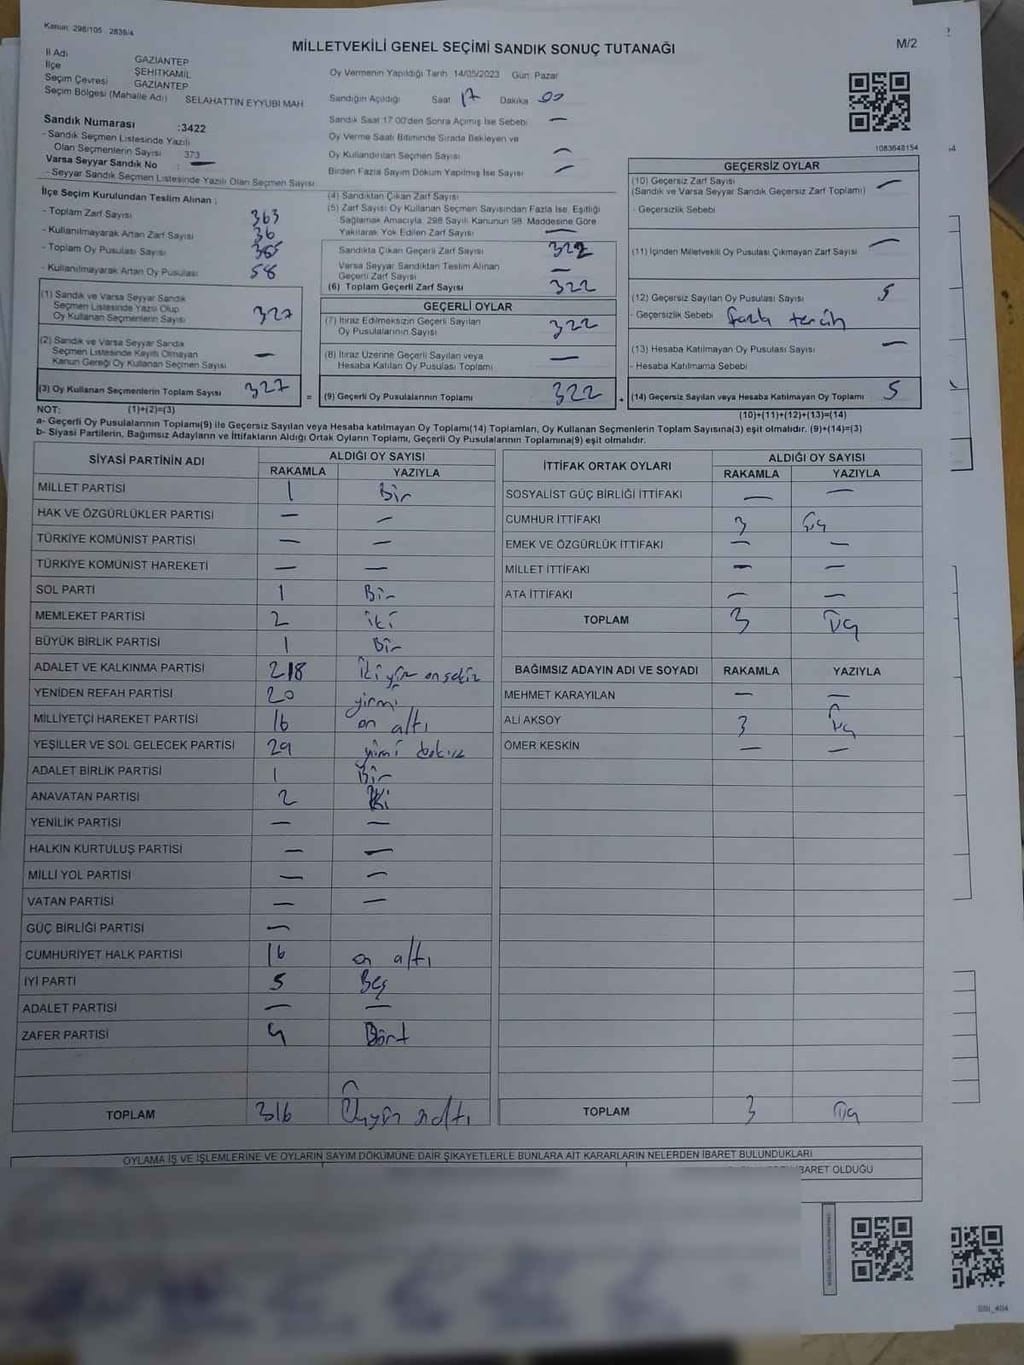 Kanun: 298/105 2839/4
MİLLETVEKİLİ GENEL SEÇİMİ SANDIK SONUÇ TUTANAĞI
M/2
İl Adı GAZİANTEP
İlçe ŞEHİTKAMİL
Seçim Çevresi GAZİANTEP
Seçim Bölgesi (Mahalle Adı) SELAHATTİN EYYUBİ MAH.
Sandık Numarası :3422
- Sandık Seçmen Listesinde Yazılı
Olan Seçmenlerin Sayısı 373
Varsa Seyyar Sandık No : —
- Seyyar Sandık Seçmen Listesinde Yazılı Olan Seçmen Sayısı
Oy Vermenin Yapıldığı Tarih 14/05/2023 Gün Pazar
Sandığın Açıldığı Saat 17 Dakika 00
Sandık Saat 17:00'den Sonra Açılmış İse Sebebi —
Oy Verme Saati Bitiminde Sırada Bekleyen ve
Oy Kullandırılan Seçmen Sayısı —
Birden Fazla Sayım Döküm Yapılmış İse Sayısı —
1083648154
İlçe Seçim Kurulundan Teslim Alınan :
- Toplam Zarf Sayısı 363
- Kullanılmayarak Artan Zarf Sayısı 36
- Toplam Oy Pusulası Sayısı
- Kullanılmayarak Artan Oy Pusulası 58
(1) Sandık ve Varsa Seyyar Sandık
Seçmen Listesinde Yazılı Olup
Oy Kullanan Seçmenlerin Sayısı 327
(2) Sandık ve Varsa Seyyar Sandık
Seçmen Listesinde Kayıtlı Olmayan
Kanun Gereği Oy Kullanan Seçmen Sayısı —
(3) Oy Kullanan Seçmenlerin Toplam Sayısı 327 =
(4) Sandıktan Çıkan Zarf Sayısı
(5) Zarf Sayısı Oy Kullanan Seçmen Sayısından Fazla İse, Eşitliği
Sağlamak Amacıyla, 298 Sayılı Kanunun 98. Maddesine Göre
Yakılarak Yok Edilen Zarf Sayısı —
Sandıkta Çıkan Geçerli Zarf Sayısı 322
Varsa Seyyar Sandıktan Teslim Alınan
Geçerli Zarf Sayısı —
(6) Toplam Geçerli Zarf Sayısı 322
GEÇERLİ OYLAR
(7) İtiraz Edilmeksizin Geçerli Sayılan
Oy Pusulalarının Sayısı 322
(8) İtiraz Üzerine Geçerli Sayılan veya
Hesaba Katılan Oy Pusulaları Toplamı —
(9) Geçerli Oy Pusulalarının Toplamı 322 +
GEÇERSİZ OYLAR
(10) Geçersiz Zarf Sayısı —
(Sandık ve Varsa Seyyar Sandık Geçersiz Zarf Toplamı)
- Geçersizlik Sebebi
(11) İçinden Milletvekili Oy Pusulası Çıkmayan Zarf Sayısı —
(12) Geçersiz Sayılan Oy Pusulası Sayısı 5
- Geçersizlik Sebebi fazla tercih
(13) Hesaba Katılmayan Oy Pusulası Sayısı —
- Hesaba Katılmama Sebebi
(14) Geçersiz Sayılan veya Hesaba Katılmayan Oy Toplamı 5
NOT: (1)+(2)=(3)
(10)+(11)+(12)+(13)=(14)
a- Geçerli Oy Pusulalarının Toplamı(9) ile Geçersiz Sayılan veya Hesaba katılmayan Oy Toplamı(14) Toplamları, Oy Kullanan Seçmenlerin Toplam Sayısına(3) eşit olmalıdır. (9)+(14)=(3)
b- Siyasi Partilerin, Bağımsız Adayların ve İttifakların Aldığı Ortak Oyların Toplamı, Geçerli Oy Pusulalarının Toplamına(9) eşit olmalıdır.
SİYASİ PARTİNİN ADI ALDIĞI OY SAYISI
RAKAMLA YAZIYLA
MİLLET PARTİSİ 1 Bir
HAK VE ÖZGÜRLÜKLER PARTİSİ — —
TÜRKİYE KOMÜNİST PARTİSİ — —
TÜRKİYE KOMÜNİST HAREKETİ — —
SOL PARTİ 1 Bir
MEMLEKET PARTİSİ 2 iki
BÜYÜK BİRLİK PARTİSİ 1 Bir
ADALET VE KALKINMA PARTİSİ 218 İkiyüz onsekiz
YENİDEN REFAH PARTİSİ 20 yirmi
MİLLİYETÇİ HAREKET PARTİSİ 16 on altı
YEŞİLLER VE SOL GELECEK PARTİSİ 29 yirmi dokuz
ADALET BİRLİK PARTİSİ 1 Bir
ANAVATAN PARTİSİ 2 İki
YENİLİK PARTİSİ — —
HALKIN KURTULUŞ PARTİSİ — —
MİLLİ YOL PARTİSİ — —
VATAN PARTİSİ — —
GÜÇ BİRLİĞİ PARTİSİ —
CUMHURİYET HALK PARTİSİ 16 on altı
İYİ PARTİ 5 Beş
ADALET PARTİSİ — —
ZAFER PARTİSİ 4 Dört
TOPLAM 316 Üçyüz on altı
İTTİFAK ORTAK OYLARI ALDIĞI OY SAYISI
RAKAMLA YAZIYLA
SOSYALİST GÜÇ BİRLİĞİ İTTİFAKI — —
CUMHUR İTTİFAKI 3 Üç
EMEK VE ÖZGÜRLÜK İTTİFAKI — —
MİLLET İTTİFAKI — —
ATA İTTİFAKI — —
TOPLAM 3 Üç
BAĞIMSIZ ADAYIN ADI VE SOYADI RAKAMLA YAZIYLA
MEHMET KARAYILAN — —
ALİ AKSOY 3 Üç
ÖMER KESKİN — —
TOPLAM 3 Üç
OYLAMA İŞ VE İŞLEMLERİNE VE OYLARIN SAYIM DÖKÜMÜNE DAİR ŞİKAYETLERLE BUNLARA AİT KARARLARIN NELERDEN İBARET BULUNDUKLARI
İBARET OLDUĞU